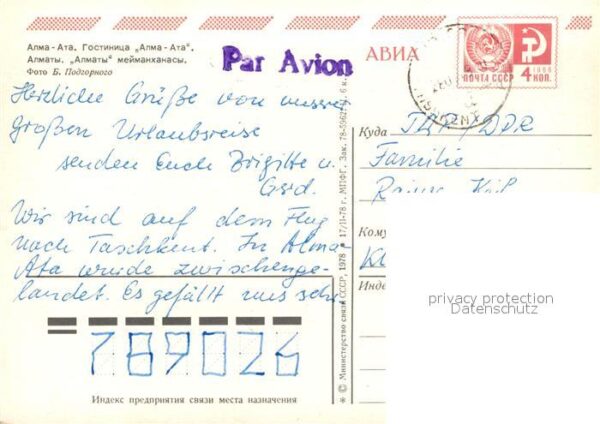 Алма-Ата. Гостиница „Алма-Ата".
Алматы. „Алматы" мейманханасы.
Фото Б. Подгорного
Par Avion
АВИА
ПОЧТА СССР
1966
4 КОП.
Herzliche Grüße von unserer
großen Urlaubsreise
senden Euch Brigitte u.
Gerd.
Wir sind auf dem Flug
nach Taschkent. In Alma-
Ata wurde zwischenge-
landet. Es gefällt uns sehr
Куда
DDR
Familie
Кому
Инде
privacy protection
Datenschutz
789026
Индекс предприятия связи места назначения
* © Министерство связи СССР, 1978 г. 17/II-78 г. МПФГ. Зак. 78-5562